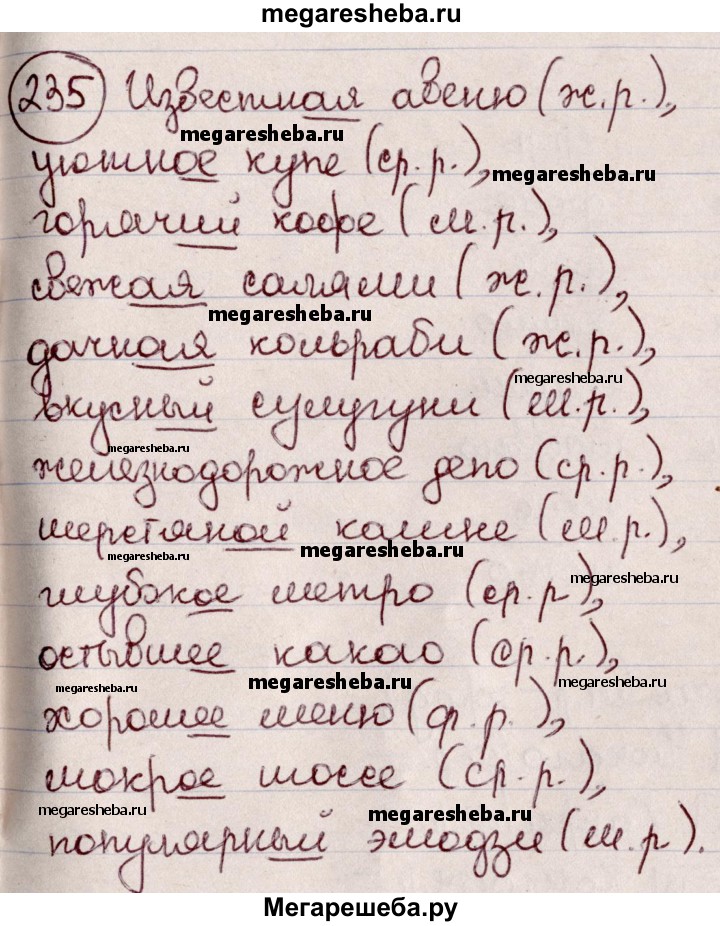 megaresheba.ru
235 Известная авеню (ж.р.),
megaresheba.ru
уютное купе (ср.р.),
megaresheba.ru
горячий кофе (м.р.),
свежая салями (ж.р.),
megaresheba.ru
дачная кольраби (ж.р.),
megaresheba.ru
вкусный сулугуни (м.р.),
megaresheba.ru
железнодорожное депо (ср.р.),
шерстяной кашне (м.р.),
megaresheba.ru
megaresheba.ru
megaresheba.ru
глубокое метро (ср.р),
остывшее какао (ср.р.),
megaresheba.ru
megaresheba.ru
megaresheba.ru
хорошее меню (ср.р.),
мокрое шоссе (ср.р.),
megaresheba.ru
megaresheba.ru
популярный эмодзи (м.р).
Мегарешеба.ру